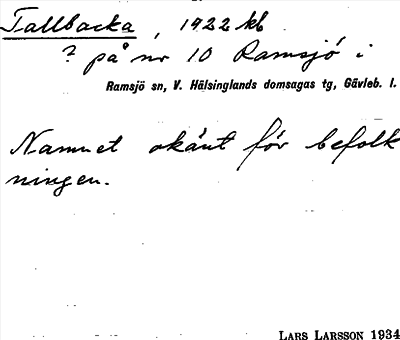 Tallbacka, 1922 kb
? på nr 10 Ramsjö i
Ramsjö sn, V. Hälsinglands domsagas tg, Gävleb. l.
Namnet okänt för befolk
ningen.
LARS LARSSON 1934